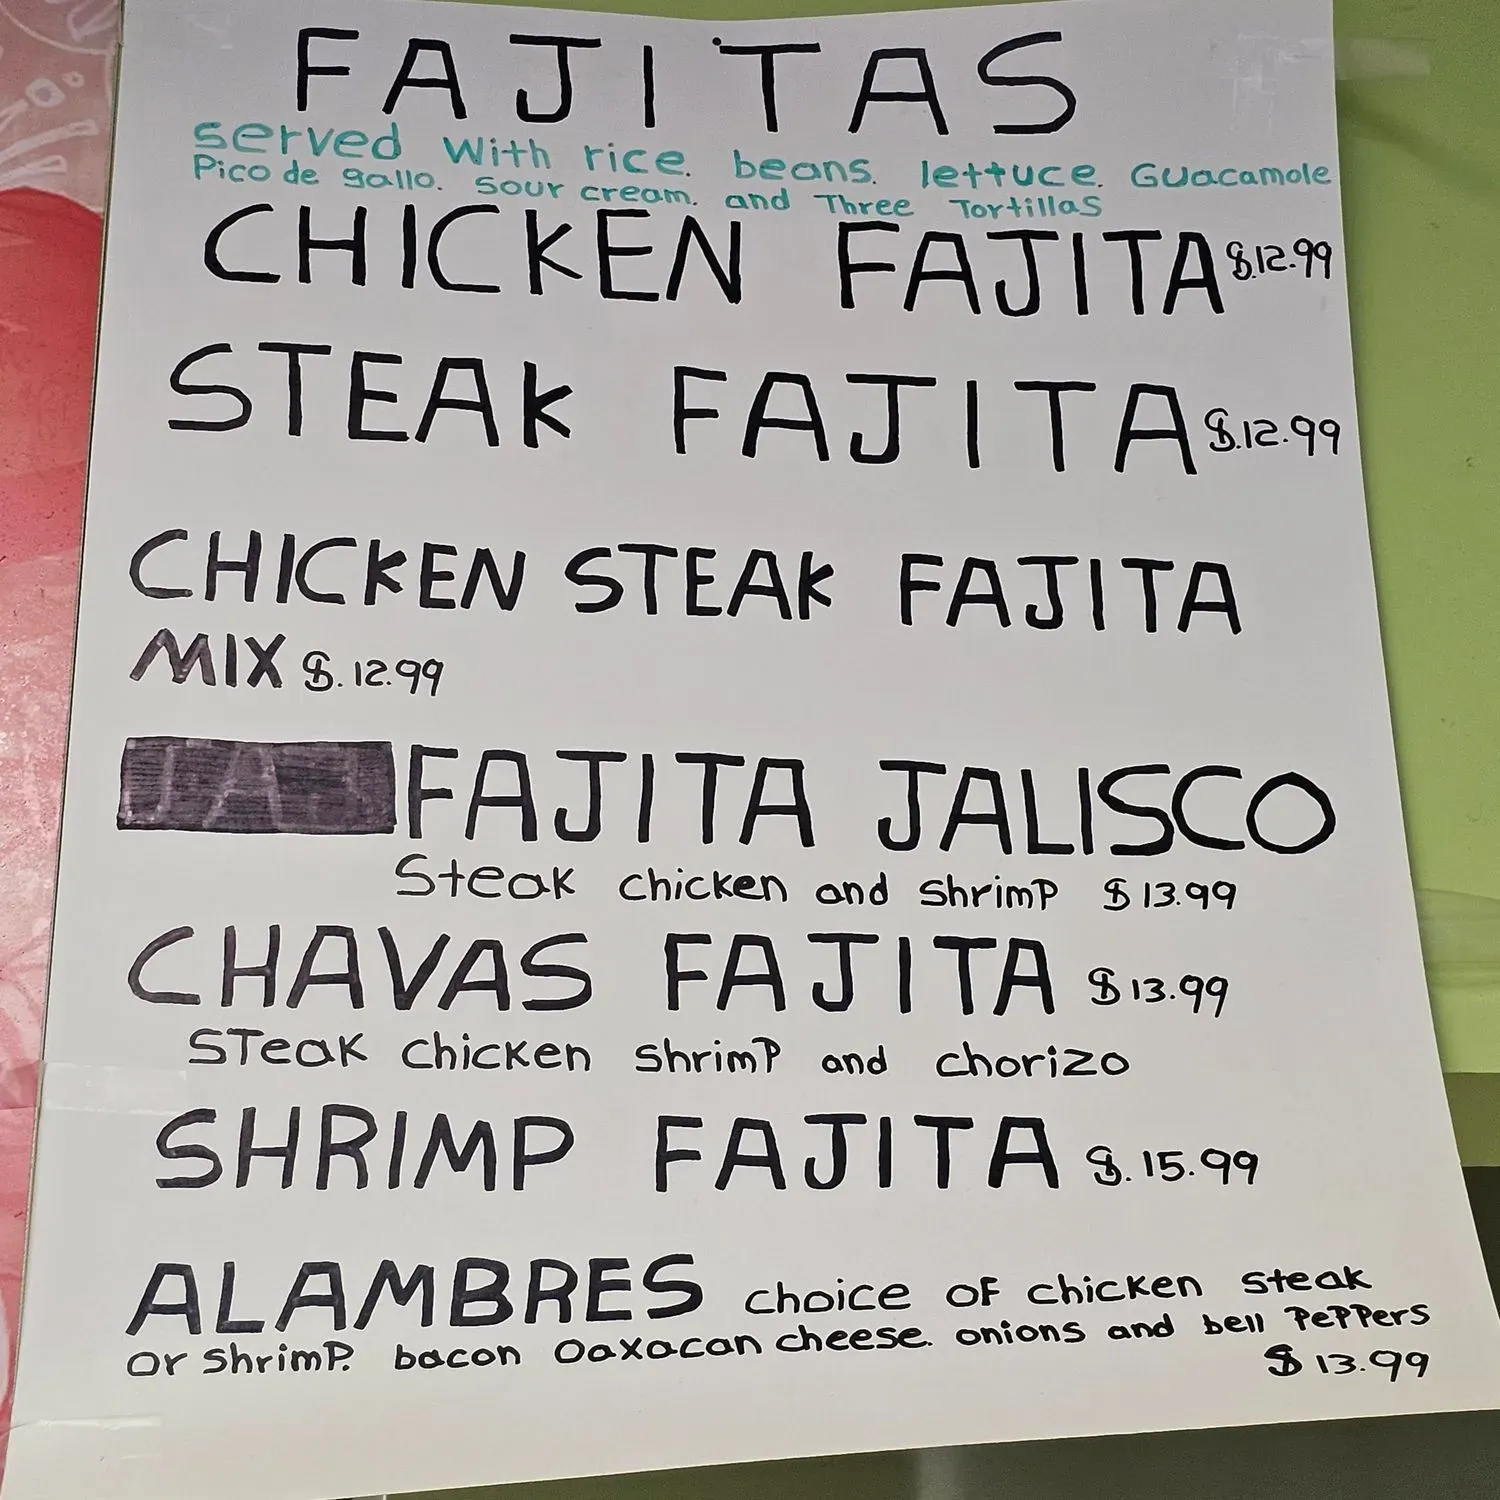 FAJITAS
served With rice. beans. lettuce. Guacamole
Pico de gallo. sour cream. and Three Tortillas
CHICKEN FAJITA $.12.99
STEAK FAJITA $.12.99
CHICKEN STEAK FAJITA
MIX $.12.99
FAJITA JALISCO
Steak chicken and shrimp $13.99
CHAVAS FAJITA $13.99
STeak chicken shrimp and chorizo
SHRIMP FAJITA $.15.99
ALAMBRES choice of chicken steak
or shrimp. bacon Oaxacan cheese. onions and bell PePPers
$13.99